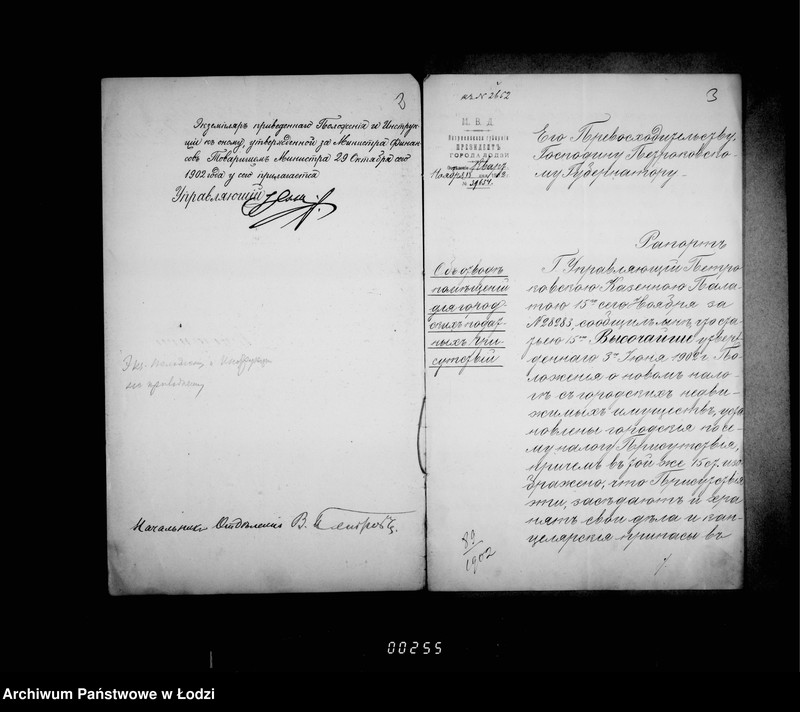 2
Экземпляръ приведеннаго Положенія и Инструк-
ціи къ оному, утвержденной за Министра Финан-
совъ Товарищемъ Министра 29 Октября сего
1902 года у сего прилагается
Управляющій
Экз. Положенія и Инструкціи
Начальникъ Отдѣленія В.
3
къ № 2652
М. В. Д.
Петроковская губернія
ПРЕЗИДЕНТЪ
ГОРОДА ЛОДЗИ
Ноября
№
Его Превосходительству,
Господину Петроковско-
му Губернатору.
Рапортъ
Объ отводѣ
помѣщеній
для город-
скихъ подат-
ныхъ При-
сутствій
Г. Управляющій Петро-
ковскою Казенною Пала-
тою 15го сего Ноября за
№ 28283, сообщилъ мнѣ, что ста-
тьею 15ю Высочайше утверж-
деннаго 8го Іюня 1902 г. По-
ложенія о новомъ нало-
гѣ съ городскихъ недви-
жимыхъ имуществъ, уста-
новлены городскія по се-
му налогу Присутствія,
причемъ въ той же 15 ст. изо-
бражено, что Присутствія
эти, засѣдаютъ и хра-
нятъ свои дѣла и кан-
целярскіе припасы въ
89
1902
00255
Archiwum Państwowe w Łodzi